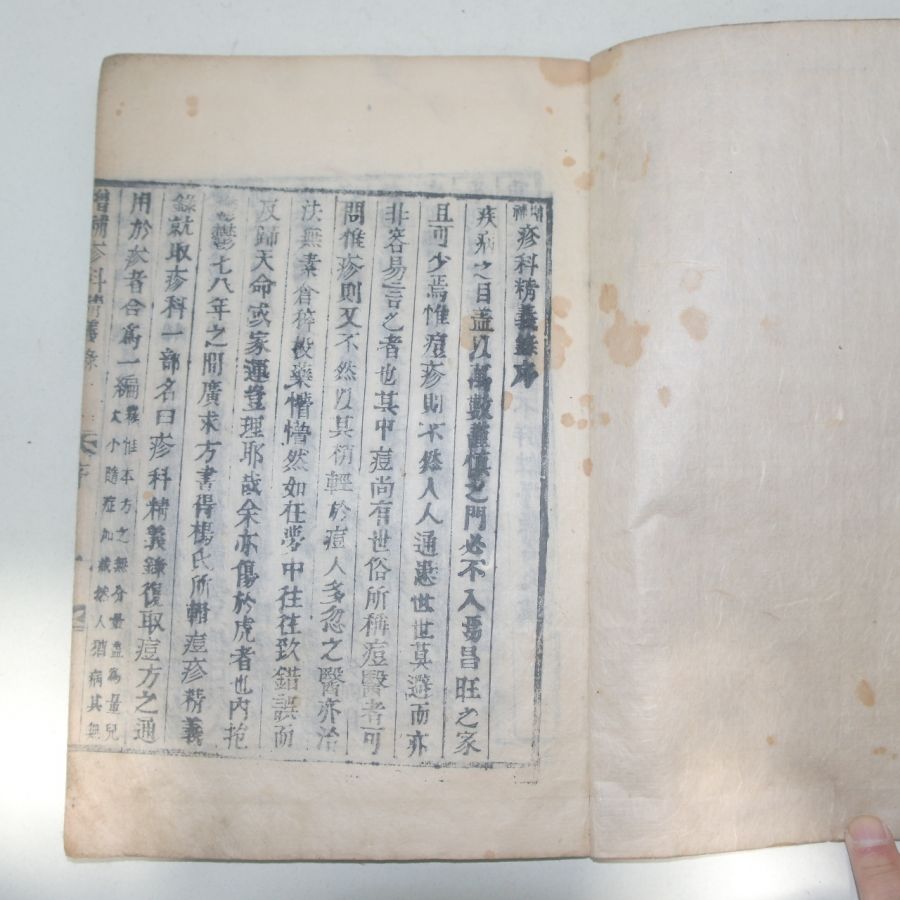 增補疹科精義錄序
疾病之目蓋以萬數謹愼之門必不入焉昌旺之家
且可少焉惟痘疹則不然人人通患世世莫避而亦
非容易言之者也其中痘尚有世俗所稱痘醫者可
問惟疹則又不然以其稍輕於痘人多忽之醫亦治
法無素倉稡投藥懵懵然如在夢中往往致錯誤而
反歸天命或家運豈理耶哉余亦傷於虎者也內抱
鬱七八年之間廣求方書得楊氏所輯痘疹精義
錄就取疹科一部名曰疹科精義錄復取痘方之通
用於疹者合爲一編竊惟本方之無分量蓋爲量兒
大小隨症加減然人猶病其無
增補疹科精義錄 序 一